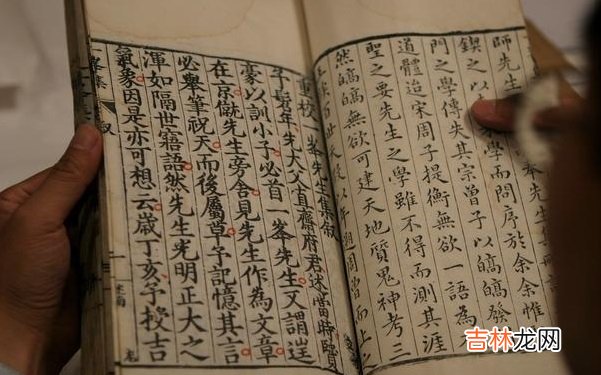 師先生
鍥之以 學而問序於余余惟
門之學傳失其宗曾子以皜皜發
道體迨宋周子提衡無欲一語為
聖之要先生之學雖不得而測其涯
然皜皜無欲可建天地質鬼神考三
重校 峯先生集敘
予髫年先大父直齋府君述當時賢
豪以訓小子必首一峯先生又謂逆
在京僦先生旁舍見先生作為文章
必舉筆祝天而後屬草予記憶其言
渾如隔世寤語然先生光明正大之
氣象因是亦可想云歲丁亥予授吉
峯集 叙 一
吉林龙网